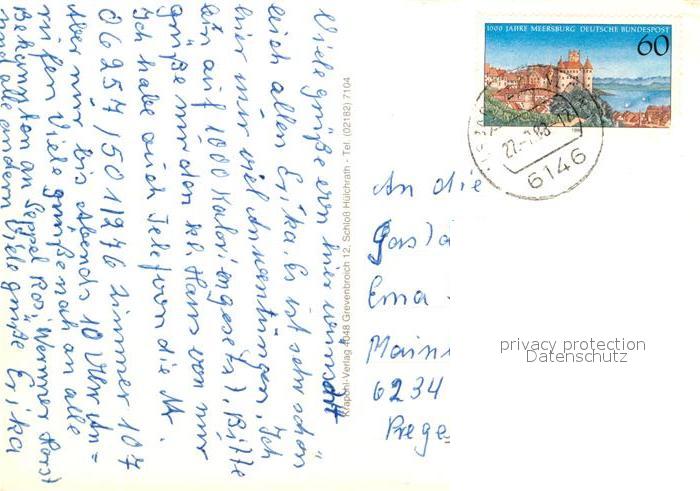 Viele grüße von hier wünscht
euch allen Erika. Es ist sehr schön
hier mir viel Anwentungen. Ich
bin auf 1000 Kalorien gesetzt. Bitte
grüße mir den kl. Hans von mir
Ich habe auch Telefon die Nr.
06257/5011276 Zimmer 107
Aber nur bis Abends 10 Uhr An=
rufen Viele grüße noch an alle
Bekannten an Seppel Rosi Werner Horst
und alle andern Viele grüße Erika
Krapohl-Verlag 4048 Grevenbroich 12, Schloß Hülchrath - Tel. (02182) 7104
1000 JAHRE MEERSBURG DEUTSCHE BUNDESPOST
60
27.-7.88-12
6146
An die
Gast
Erna
Main
6234
privacy protection
Datenschutz